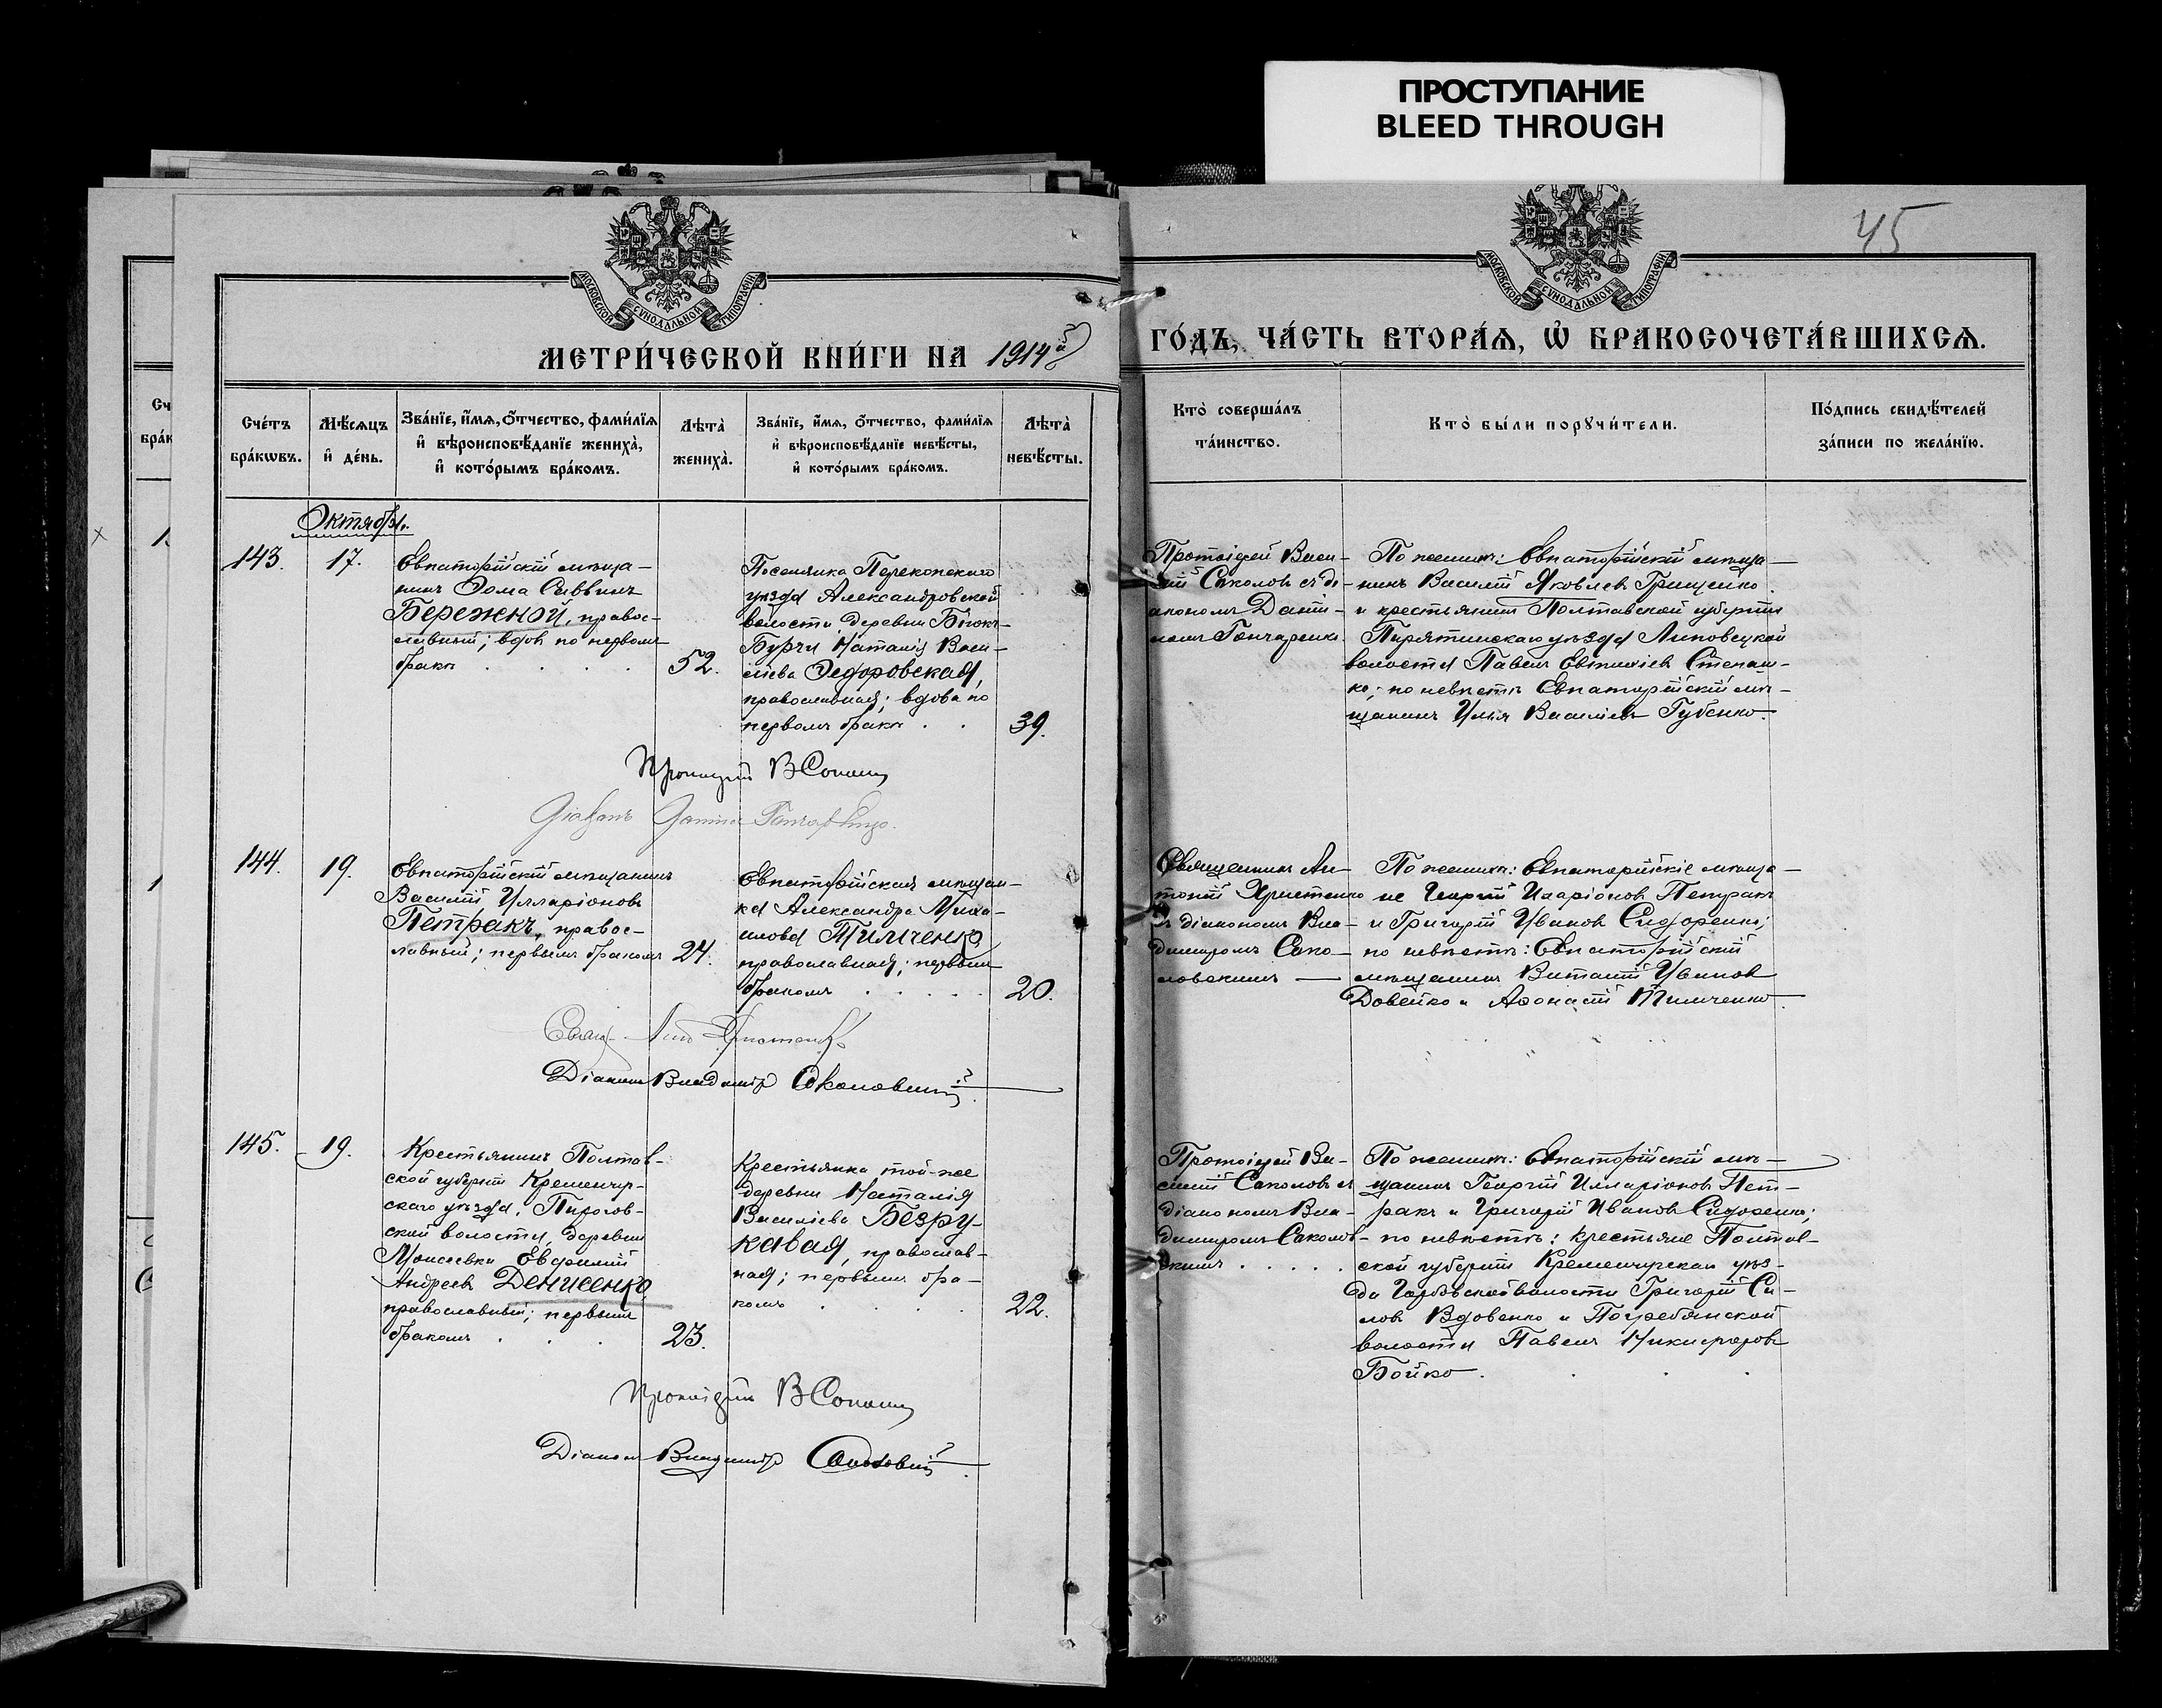 ПРОСТУПАНИЕ
BLEED THROUGH
45
МОСКОВСКОЙ СѴНОДАЛЬНОЙ ТИПОГРАФІИ
МОСКОВСКОЙ СѴНОДАЛЬНОЙ ТИПОГРАФІИ
МЕТРИ́ЧЕСКОЙ КНИ́ГИ НА 1914й
ГО́ДЪ, ЧА́СТЬ ВТОРА́Ѧ, Ѽ БРАКОСОЧЕТА́ВШИХСѦ.
Сче́тъ
бра́кѡвъ.
Мѣ́сѧцъ
и҆ де́нь.
Зва́нїе, и҆́мѧ, ѻ҆́тчество, фами́лїѧ
и҆ вѣроисповѣ́данїе жениха̀,
и҆ кото́рымъ бра́комъ.
Лѣ́та
жениха̀.
Зва́нїе, и҆́мѧ, ѻ҆́тчество, фами́лїѧ
и҆ вѣроисповѣ́данїе невѣ́сты,
и҆ кото́рымъ бра́комъ.
Лѣ́та
невѣ́сты.
Кто̀ соверша́лъ
та́инство.
Кто̀ бы́ли порꙋчи́тели.
По́дпись свидѣ́телей
за́писи по жела́нїю.
Октябрь.
143.
17.
Евпаторійскій мѣща-
нинъ Ѳома Саввинъ
Бережной, правос-
лавный; вдовъ по первомъ
бракѣ
52.
Поселянка Перекопскаго
уѣзда Александровской
волости, деревни Біюкъ-
Бурчи Наталія Васи-
ліева Ѳедоровская,
православная; вдова по
первомъ бракѣ
39.
Протоіерей Васи-
лій Соколовъ съ ді-
акономъ Даніи-
ломъ Гончаренко.
По женихѣ: Евпаторійскій мѣща-
нинъ Василій Яковлевъ Грищенко
и крестьянинъ Полтавской губерніи
Пирятинскаго уѣзда Липовецкой
волости Павелъ Евѳиміевъ Степаш-
ко; по невѣстѣ Евпаторійскій мѣ-
щанинъ Илья Василіевъ Губенко.
Протоіерей В Соколовъ
Діаконъ Даніилъ Гончаренко.
144.
19.
Евпаторійскій мѣщанинъ
Василій Илларіоновъ
Петракъ, правос-
лавный; первымъ бракомъ
24.
Евпаторійская мѣщан-
ка Александра Миха-
илова Тимченко
православная; первымъ
бракомъ
20.
Священникъ Ан-
тоній Христенко
съ діакономъ Вла-
диміромъ Соко-
ловскимъ
По женихѣ: Евпаторійскіе мѣща-
не Георгій Иларіоновъ Петракъ
и Григорій Ивановъ Сидоренко;
по невѣстѣ: Евпаторійскій
мѣщанинъ Виталій Ивановъ
Довейко и Аѳонасій Тимченко.
Свящ. Ант Христенко
Діаконъ Владиміръ Соколовскій
145.
19.
Крестьянинъ Полтав-
ской губерніи Кременчуг-
скаго уѣзда, Пирогов-
ской волости, деревни
Моисеевки Евфимій
Андреевъ Денисенко
православный; первымъ
бракомъ
23.
Крестьянка той-же
деревни Наталія
Василіева Безру-
кавая, православ-
ная; первымъ бра-
комъ
22.
Протоіерей Ва-
силій Соколовъ съ
діакономъ Вла-
диміромъ Соколов-
скимъ
По женихѣ: Евпаторійскій мѣ-
щанинъ Георгій Илларіоновъ Пет-
ракъ и Григорій Ивановъ Сидоренко;
по невѣстѣ: крестьяне Полтав-
ской губерніи Кременчугскаго уѣз-
да волости Григорій Си-
ловъ Вдовенко и Погребянской
волости Павелъ Никифоровъ
Бойко.
Протоіерей В Соколовъ
Діаконъ Владиміръ Соколовскій